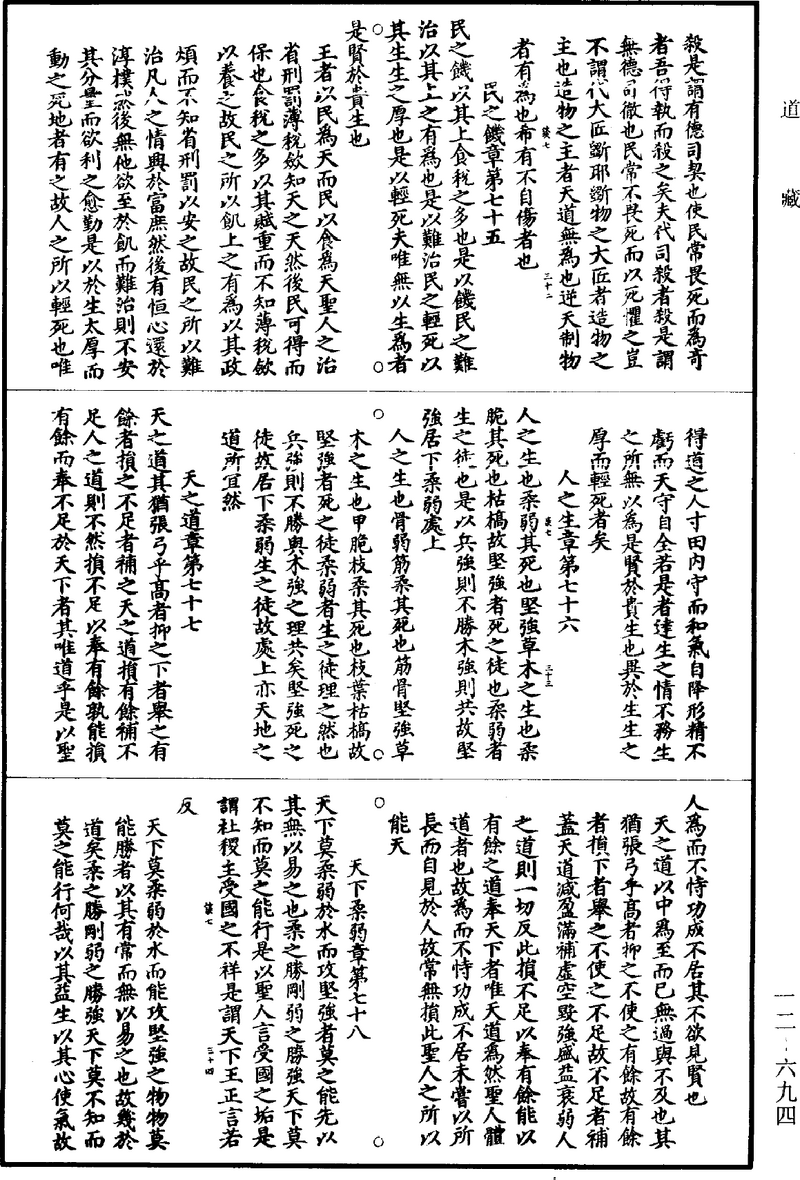 道藏
殺是謂有德司契也使民常畏死而為奇
者吾得執而殺之矣夫代司殺者殺是謂
無德司徹也民常不畏死而以死懼之豈
不謂代大匠斲耶斲物之大匠者造物之
主也造物之主者天道無為也逆天制物
者有為也希有不自傷者也
民之饑章第七十五
民之饑以其上食稅之多也是以饑民之難
治以其上之有為也是以難治民之輕死以
其生生之厚也是以輕死夫唯無以生為者
是賢於貴生也
王者以民為天而民以食為天聖人之治
省刑罰薄稅斂知天之天然後民可得而
保也食稅之多以其賦重而不知薄稅斂
以養之故民之所以飢上之有為以其政
煩而不知省刑罰以安之故民之所以難
治凡人之情興於富庶然後有恒心還於
淳樸然後無他欲至於飢而難治則不安
其分量而欲利之愈勤是以於生太厚而
動之死地者有之故人之所以輕死也唯
得道之人寸田內守而和氣自降形精不
虧而天守自全若是者達生之情不務生
之所無以為是賢於貴生也異於生生之
厚而輕死者矣
人之生章第七十六
人之生也柔弱其死也堅強草木之生也柔
脆其死也枯槁故堅強者死之徒也柔弱者
生之徒也是以兵強則不勝木強則共故堅
強居下柔弱處上
人之生也骨弱筋柔其死也筋骨堅強草
木之生也甲脆枝柔其死也枝葉枯槁故
堅強者死之徒柔弱者生之徒理之然也
兵強則不勝與木強之理共矣堅強死之
徒故居下柔弱生之徒故處上亦天地之
道所宜然
天之道章第七十七
天之道其猶張弓乎高者抑之下者舉之有
餘者損之不足者補之天之道損有餘補不
足人之道則不然損不足以奉有餘孰能損
有餘而奉不足於天下者其唯道乎是以聖
人為而不恃功成不居其不欲見賢也
天之道以中為至而已無過與不及也其
猶張弓乎高者抑之不使之有餘故有餘
者損下者舉之不使之不足故不足者補
蓋天道減盈滿補虛空毀強盛益衰弱人
之道則一切反此損不足以奉有餘能以
有餘之道奉天下者唯天道為然聖人體
道者也故為而不恃功成不居未嘗以所
長而自見於人故常無損此聖人之所以
能天
天下柔弱章第七十八
天下莫柔弱於水而攻堅強者莫之能先以
其無以易之也柔之勝剛弱之勝強天下莫
不知而莫之能行是以聖人言受國之垢是
謂社稷主受國之不祥是謂天下王正言若
反
天下莫柔弱於水而能攻堅強之物物莫
能勝者以其有常而無以易之也故幾於
道矣柔之勝剛弱之勝強天下莫不知而
莫之能行何哉以其益生以其心使氣故
一二·六九四